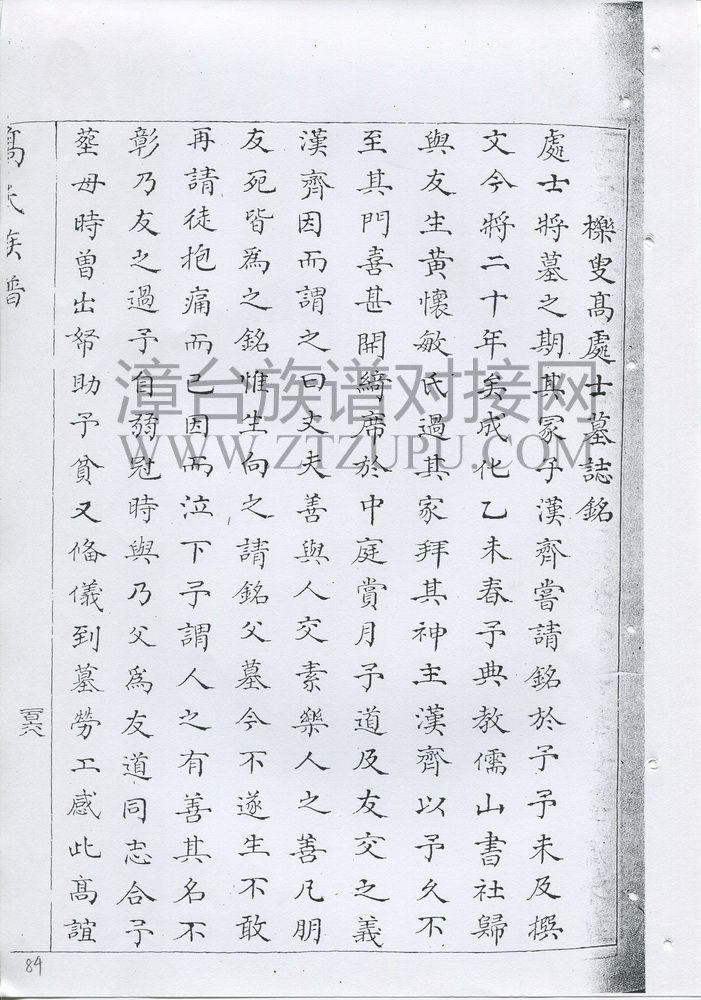 櫟叟髙處士墓誌銘
處士將墓之期其冡子漢齊嘗請銘於予予未及撰
文今將二十年矣成化乙未春予典教儒山書社歸
與友生黄懷敏氏過其家拜其神主漢齊以予久不
至其門喜甚開綺席於中庭賞月予道及友交之義
漢齊因而謂之曰丈夫善與人交素樂人之善凡朋
友死皆爲之銘惟生向之請銘父墓今不遂生不敢
再請徒抱痛而已因而泣下予謂人之有善其名不
彰乃友之過予自弱冠時與乃父爲友道同志合予
塟母時曽出帑助予貧又俻儀到墓勞工感此髙誼
髙氏族譜
一百六八
84
漳台族谱对接网
WWW.ZTZUPU.COM